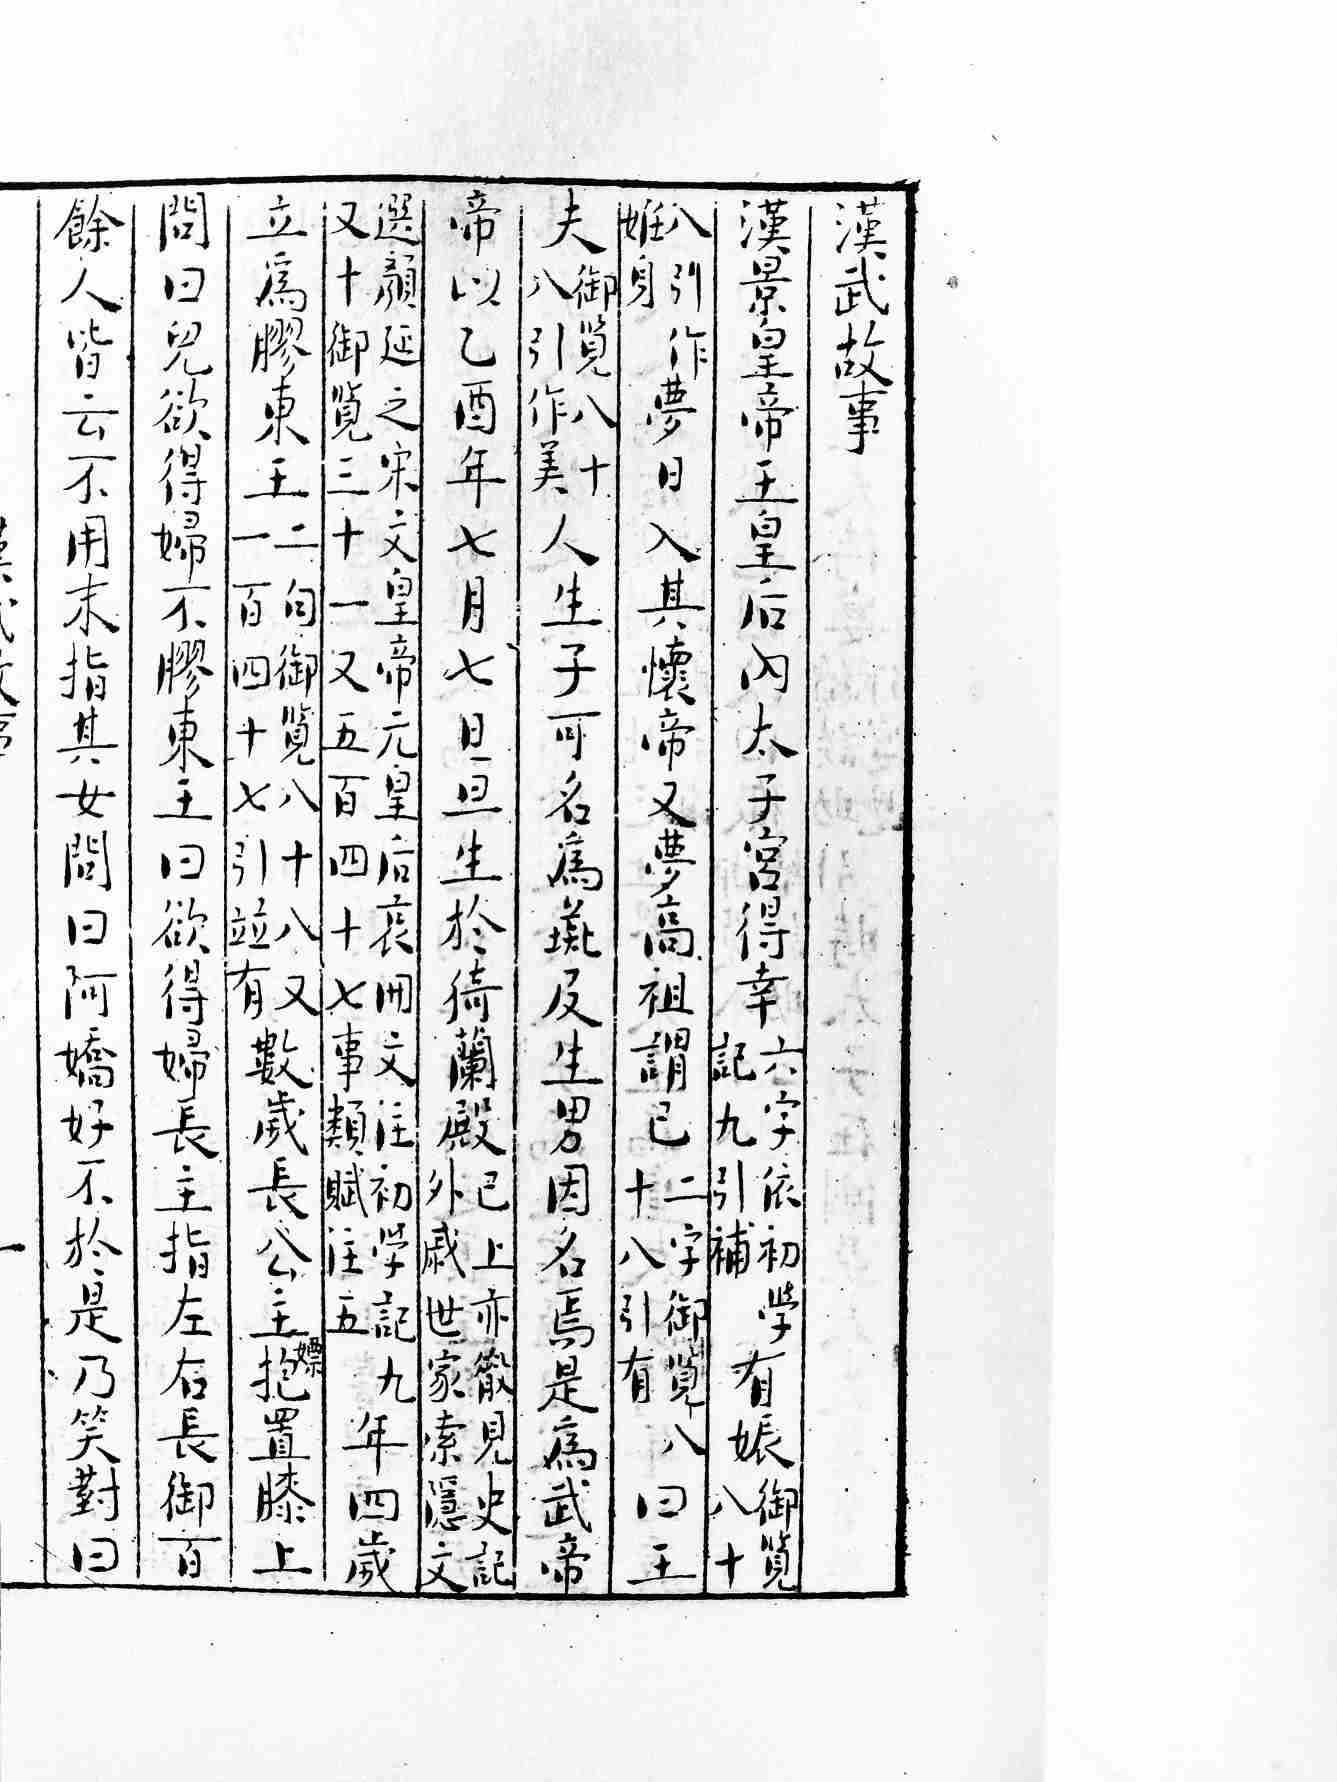 漢武故事
漢景皇帝王皇后內太子宮得幸六字依初學記九引補有娠御覽八十
八引作妊身夢日入其懷帝又夢高祖謂已二字御覽八十八引有曰王
夫御覽八十八引作美人生子可名為彘及生男因名焉是為武帝
帝以乙酉年七月七日旦生於猗蘭殿已上亦徵見史記外戚世家索隱文
選顏延之宋文皇帝元皇后哀冊文注初學記九又十御覽三十一又五百四十七事類賦注五年四歲
立為膠東王二句御覽八十八又一百四十七引並有數歲長公主嫖抱置膝上
問曰兒欲得婦不膠東王曰欲得婦長主指左右長御百
餘人皆云不用末指其女問曰阿嬌好不於是乃笑對曰
漢武故事
一